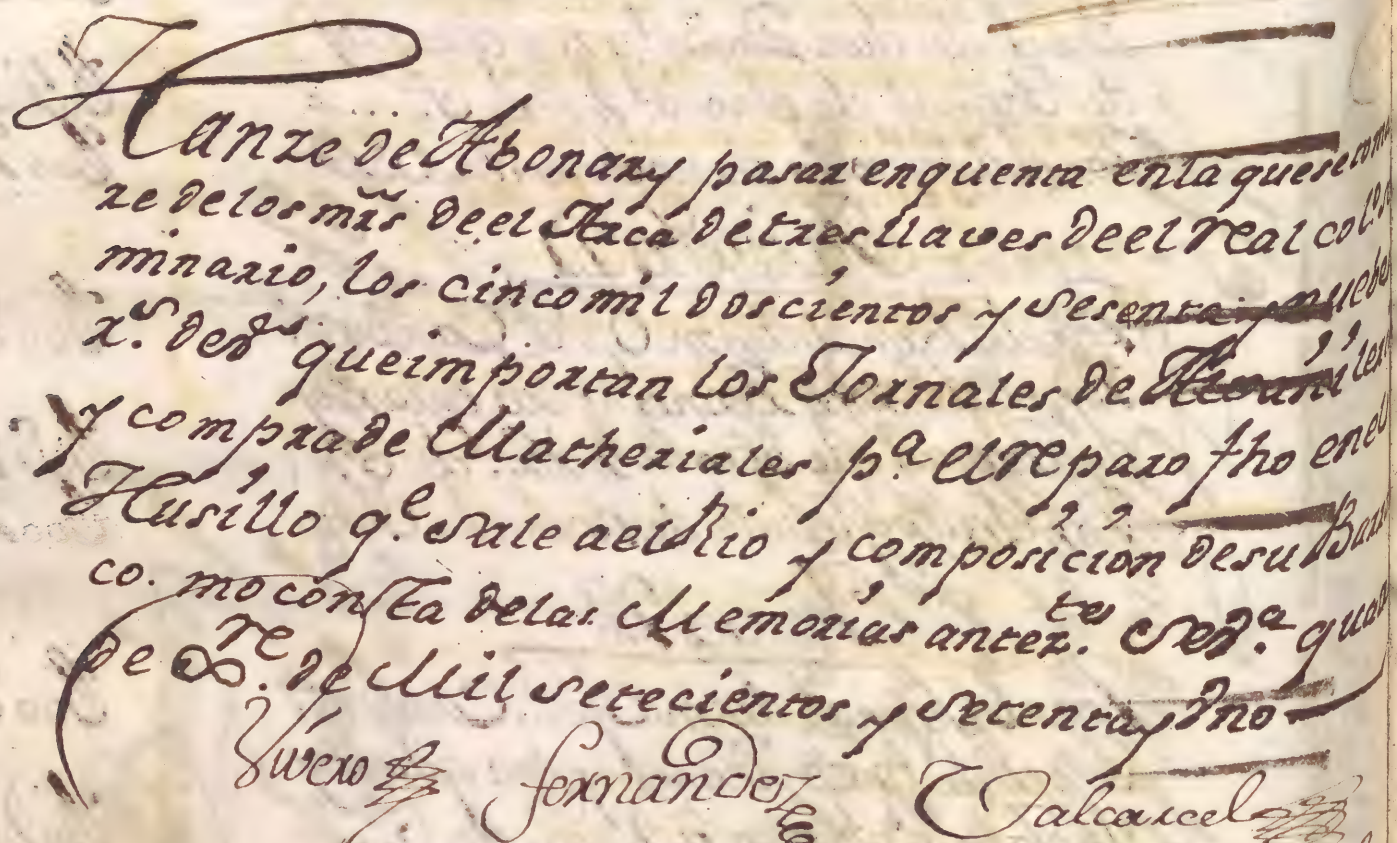 Hanze de Abonar y pasar enquenta enla que se tom
re delos mrs de el Arca de tres llaves de el real col.º se
minario, los cinco mil doscientos y sesenta y nuebe
r.s de v.n que importan los Jornales de Albañiles
y compra de Matheriales p.a el reparo fho en el
Husillo q.e sale a el Rio y composicion de su
co. mo consta delas Memorias anter.tes Sev.a
de 8.re de Mil setecientos y setenta y Uno
Vivero fernandez Valcarcel